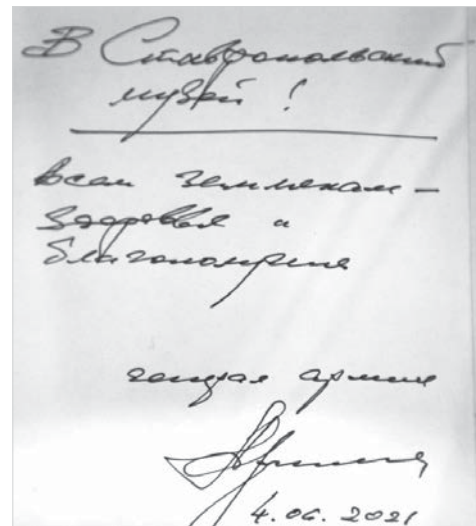 В Ставропольский
музей!
Всем землякам –
здоровья и
благополучия
генерал армии
4.06.2021